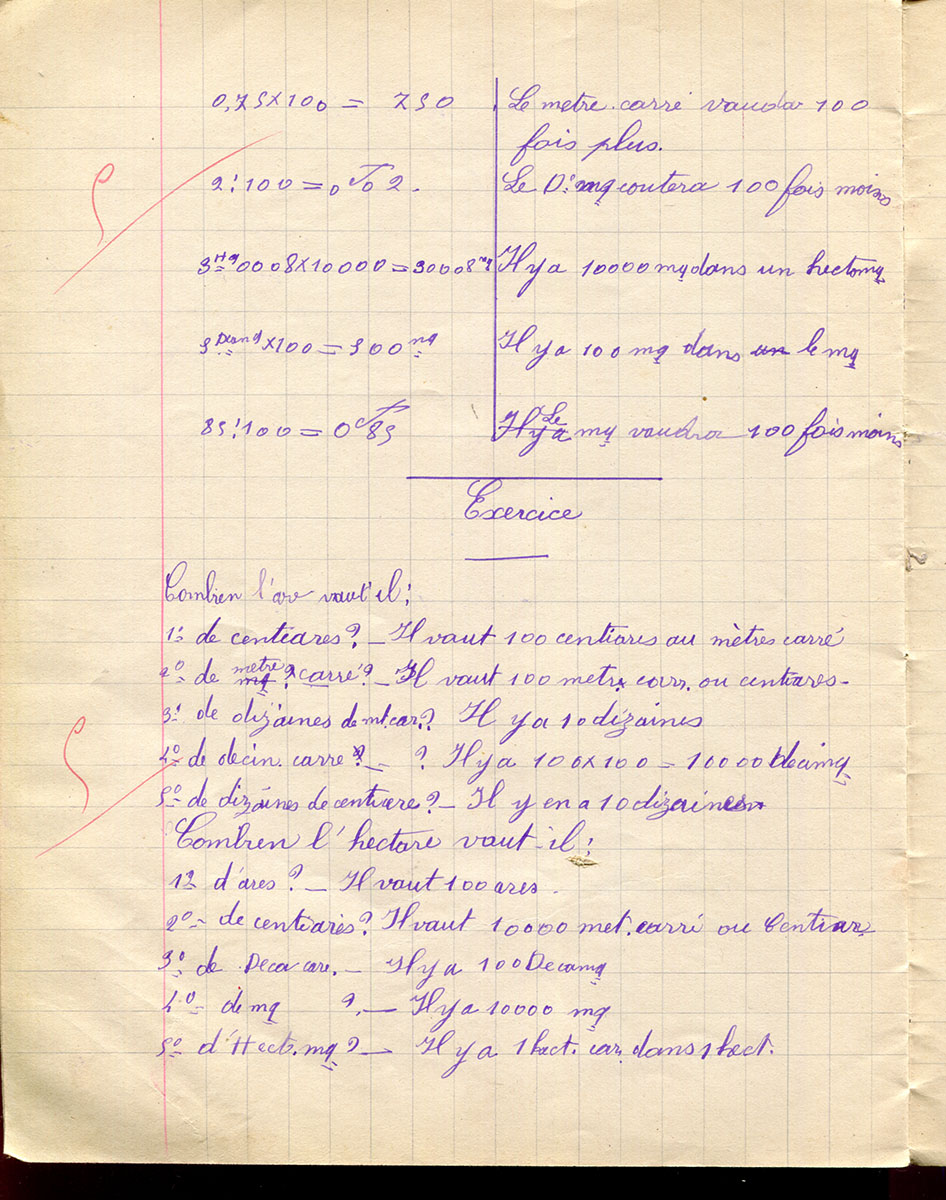 0,75×100 = 750 Le metre.carré vaudar 100
fois plus.
2:100 = 0,02. Le Dmq coutera 100 fois moins
3Hmq0008×10000=30008mq Il y a 10000 mq dans un hectomq
5Damq×100=500mq Il y a 100 mq dans un le mq
85:100 = 0F85 Il y a Le mq vaudra 100 fois moins
Exercice
Combien l'are vaut'il:
1º de centiares? _ Il vaut 100 centiares au mètres carré
2º de mq metre? carré? _ Il vaut 100 metr. carr. ou centiares-
3º de dizaines de mt.car? Il y a 10 dizaines
4º de decin. carre? _ ? Il y a 100×100 = 10000 decimq
5º de dizaines de centiare? _ Il y en a 10 dizaines
Combien l'hectare vaut-il:
1º d'ares? _ Il vaut 100 ares.
2º de centiares? Il vaut 10000 met.carré ou Centiar
3º de Deca care. _ Il y a 100 Decamq
4º de mq ?. _ Il y a 10000 mq
5º d'Hect.mq? _ Il y a 1 hect. car. dans 1 hect.